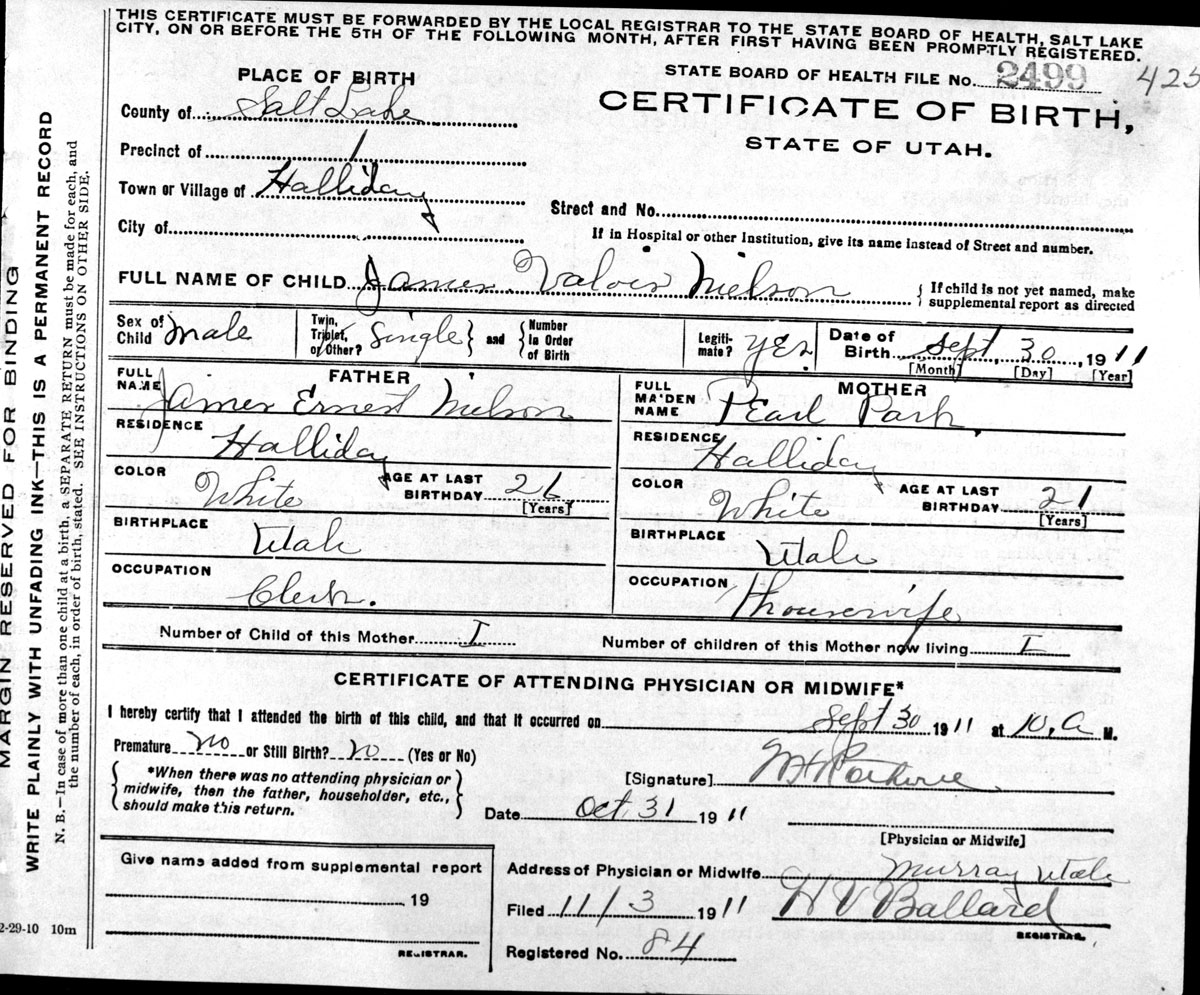 THIS CERTIFICATE MUST BE FORWARDED BY THE LOCAL REGISTRAR TO THE STATE BOARD OF HEALTH, SALT LAKE
CITY, ON OR BEFORE THE 5TH OF THE FOLLOWING MONTH, AFTER FIRST HAVING BEEN PROMPTLY REGISTERED.
PLACE OF BIRTH
STATE BOARD OF HEALTH FILE No. 2499 425
County of Salt Lake
CERTIFICATE OF BIRTH,
STATE OF UTAH.
Precinct of 1
Town or Village of Halliday
Street and No.
City of
If in Hospital or other Institution, give its name instead of Street and number.
FULL NAME OF CHILD James Valois Nielson
{ If child is not yet named, make
supplemental report as directed
Sex of Child Male
Twin, Triplet, or Other? Single } and { Number In Order of Birth
Legitimate? Yes
Date of Birth Sept, 30, 1911
[Month] [Day] [Year]
FATHER
FULL NAME James Ernest Nielson
RESIDENCE Halliday
COLOR White
AGE AT LAST BIRTHDAY 26
[Years]
BIRTHPLACE Utah
OCCUPATION Clerk.
MOTHER
FULL MAIDEN NAME Pearl Park,
RESIDENCE Halliday
COLOR White
AGE AT LAST BIRTHDAY 21
[Years]
BIRTHPLACE Utah
OCCUPATION Housewife
Number of Child of this Mother I
Number of children of this Mother now living I
CERTIFICATE OF ATTENDING PHYSICIAN OR MIDWIFE*
I hereby certify that I attended the birth of this child, and that it occurred on Sept 30 1911 at 10, a M.
Premature no or Still Birth? no (Yes or No)
{ *When there was no attending physician or
midwife, then the father, householder, etc.,
should make this return. }
[Signature]
Date Oct. 31 1911
[Physician or Midwife]
Give name added from supplemental report
19
REGISTRAR.
Address of Physician or Midwife Murray Utah
Filed 11/3 1911 H V Ballard
REGISTRAR.
Registered No. 84
MARGIN RESERVED FOR BINDING
WRITE PLAINLY WITH UNFADING INK—THIS IS A PERMANENT RECORD
N. B.—In case of more than one child at a birth, a SEPARATE RETURN must be made for each, and
the number of each, in order of birth, stated. SEE INSTRUCTIONS ON OTHER SIDE.
2-29-10 10m